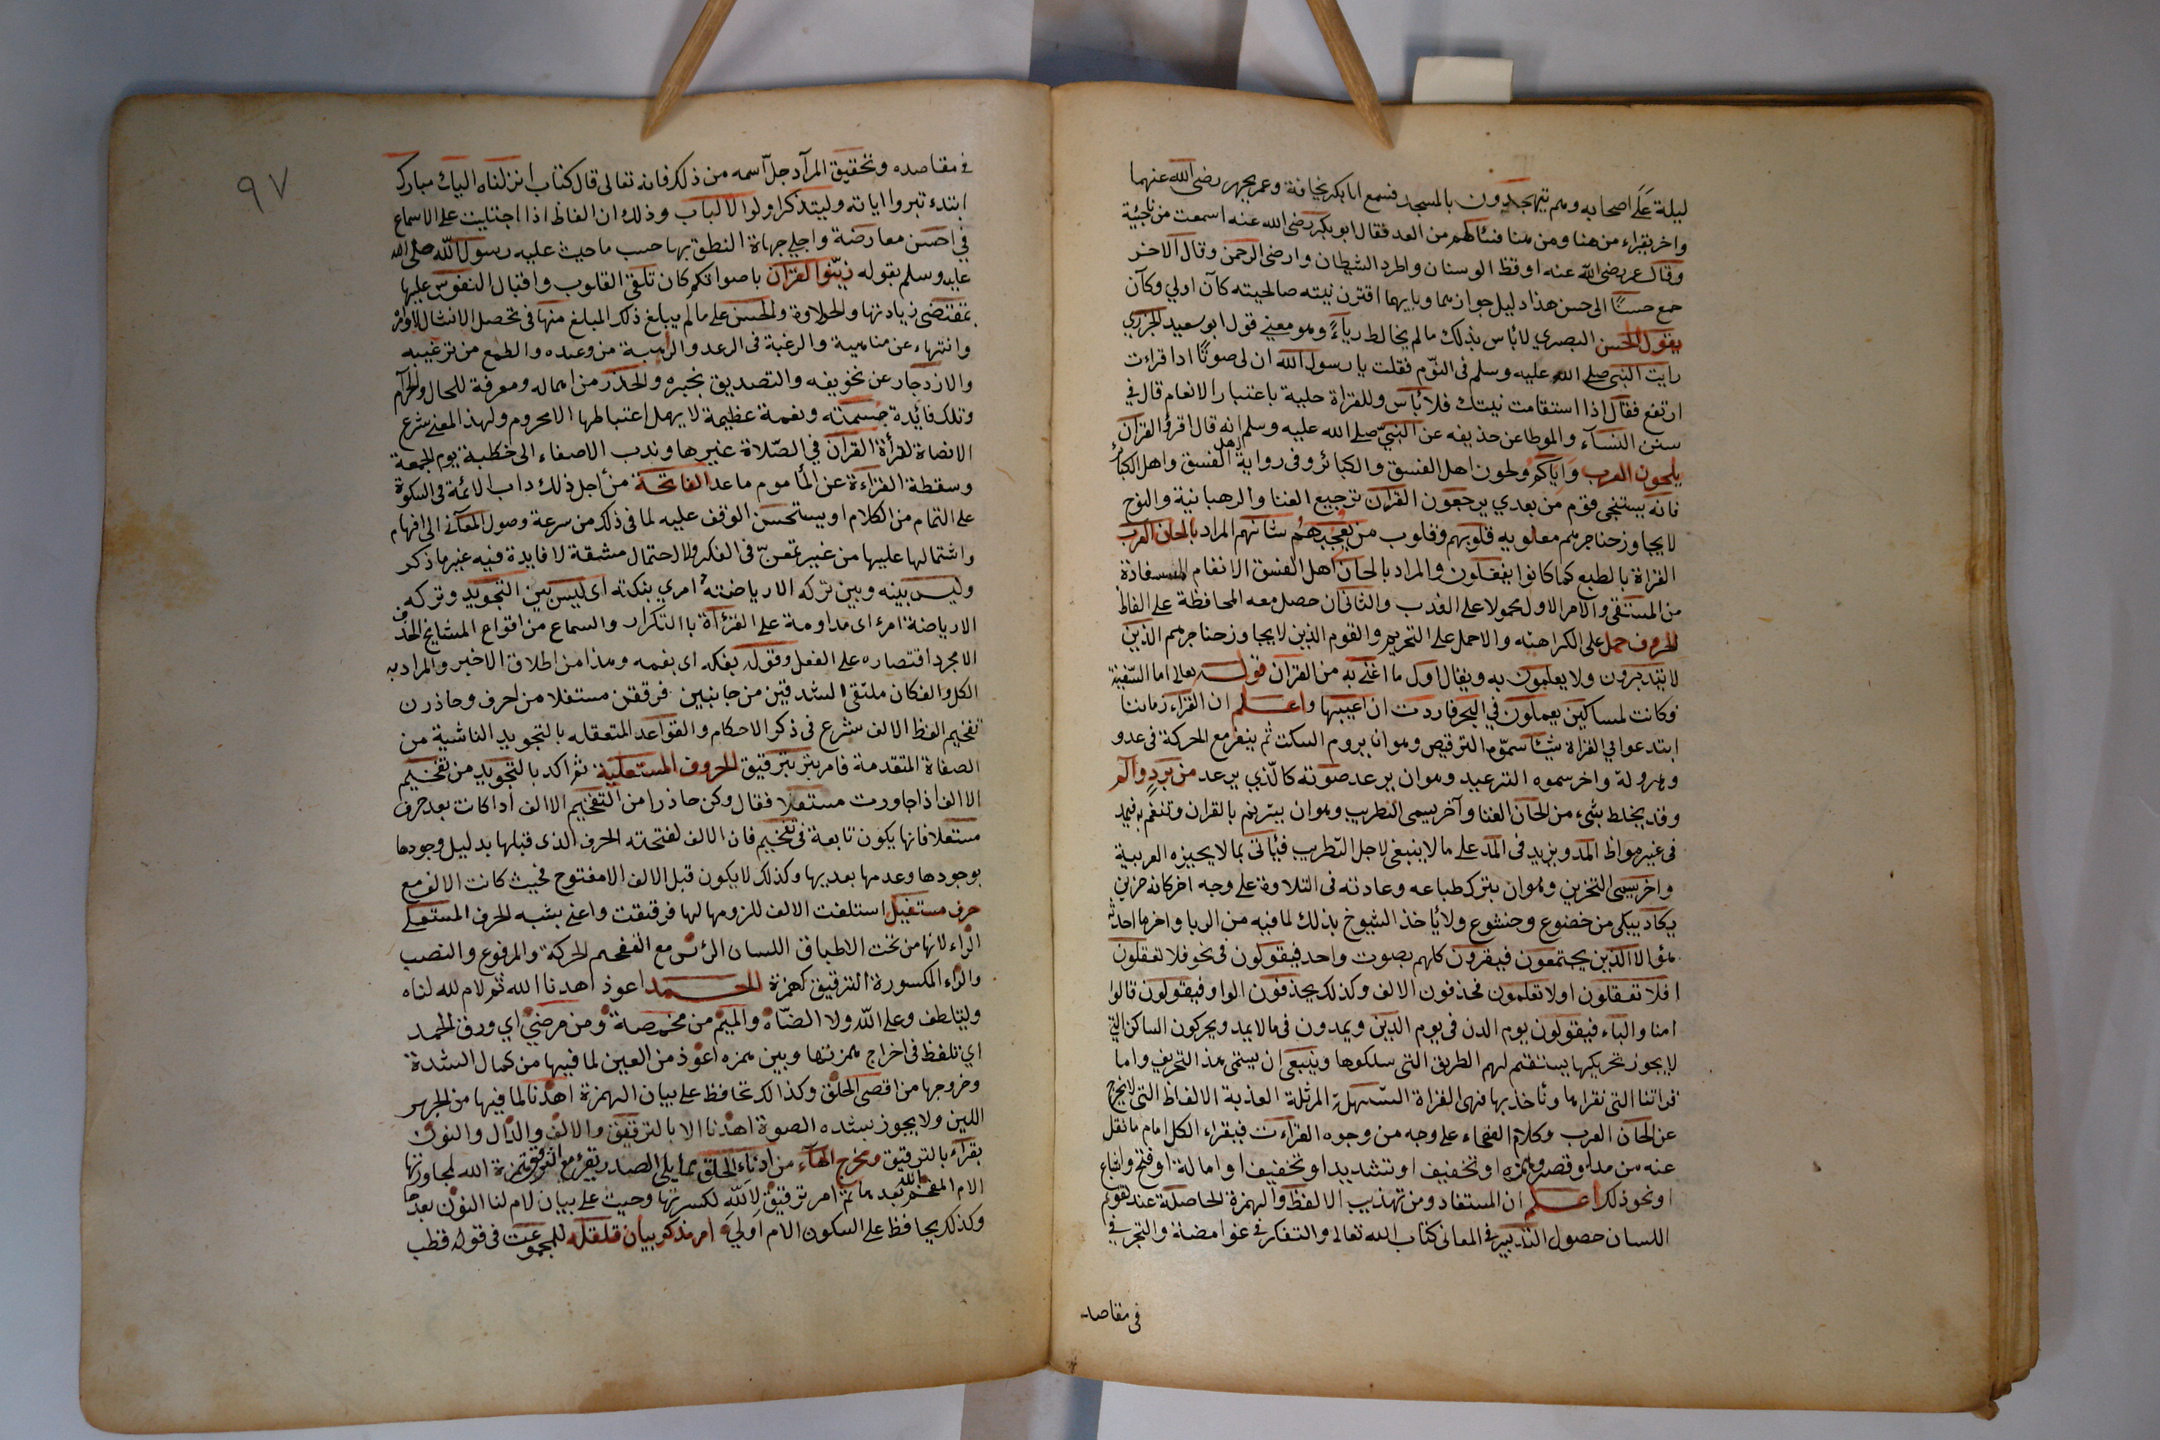 ليلة على اصحابه وهم يتهجدون بالمسجد فسمع ابا بكر يخافة وعمر يجهر رضي الله عنهما
واخر يقراء من هنا ومن هنا فسألهم من الغد فقال ابو بكر رضي الله عنه اسمعت من ناجيته
وقال عمر رضي الله عنه اوقظ الوسنان واطرد الشيطان وارضى الرحمن وقال الاخر
جمع حسنًا الى حسن هذا دليل جوازهما وبايهما اقترن نيته صالحيته كان اولي وكان
يقول الحسن البصري لابأس بذلك مالم يخالط رياءً وهو معني قول ابو سعيد الجزري
رايت النبي صلى الله عليه وسلم في النوم فقلت يا رسول الله ان لي صوتًا اذا قراءت
ارتفع فقال اذا استقامت نيتك فلا بأس وللقراة حلية باعتبار الانغام قال في
سنن النساء والموطا عن حذيفه عن النبي صلى الله عليه وسلم انه قال اقرؤ القرآن
بلحون العرب واياكم ولحون اهل الفسق والكبائر وفي رواية اهل الفسق واهل الكبائر
فانه يستجي قوم من بعدي يرجعون القرآن ترجيع الغنا والرهبانية والنوح
لايجاوز حناجرهم مغلوبه قلوبهم وقلوب من يعجبهم شانهم المراد بالحان العرب
القراة بالطبع كما كانوا يفعلون والمراد بالحان اهل الفسق الانغام المستفادة
من المستقى والامر الاول محمولا على الندب والثاني ان حصل معه المحافظة على الفاظ
الحروف حمل على الكراهته والا حمل على التحريم والقوم الذين لايجاوز حناجرهم الذين
لايتدبرون ولا يعلمون به ويقال اول ما اغني به من القران قوله تعالى اما السفينة
فكانت لمساكين يعملون في البحر فاردت ان اعيبها واعلم ان القراء زماننا
ابتدعوا في القراة شيئا سموه الترقيص وهو ان يروم السكت ثم ينفر مع الحركة في عدو
وهرولة واخر سموه الترعيد وهو ان يرعد صوته كالذي يرعد من برد وألم
وقد يخلط بشيء من الحان الغنا وآخر يسمى التطريب وهو ان يترنم بالقران وتنغم به فيمد
في غير مواظ المد ويزيد في المد على مالا ينبغي لاجل التطريب فيأتى بما لايجيزه العربية
واخر يسمى التحزين وهو ان يترك طباعه وعادته في التلاوة على وجه اخر كانه حزين
يكاد يبكى من خضوع وخشوع ولا يأخذ الشيوخ بذلك لما فيه من الريا واخر ما احدثه
هؤلاالذين يجتمعون فيقرون كلهم بصوت واحد فيقولون في نحو فلا تعقلون
افلا تعقلون اولا تعلمون فحذفون الالف وكذلك يحذفون الواو فيقولون قالوا
امنا والياء فيقولون يوم الدن في يوم الدين ويمدون في مالا يمد ويحركون الساكن التي
لايجوز تحريكها يستقيم لهم الطريق التي سلكوها وينبغي ان يسمى هذا التحريف واما
قراتنا التي نقرا بها ونأخذ بها فهى القراة السهلة المرتلة العذبة الالفاظ التي لا يخرج
عن الحان العرب وكلام الفصحاء على وجه من وجوه القراءت فيقراء الكل امام ما نقل
عنه من مد او قصر وهمزه او تخفيف او تشديد او تخفيف او امالة او فتح واشباع
او نحو ذلك اعلم ان المستفاد من تهذيب الالفظ والهمزة الحاصلة عند تقويم
اللسان حصول التدبير في المعاني كتاب الله تعالى والتفكر في غوامضة والتبحر في
في مقاصد
٩٧
في مقاصده وتحقيق المراد جل اسمه من ذلك فانه تعالى قال كتاب انزلناه اليك مبارك
ابتدء تبروا اياته وليتذكر اولوا الالباب وذلك ان الفاظ اذا اجتليت على الاسماع
في احسن معارضة واجلي جهاة النطق بها حسب ما حيث عليه رسول الله صلى الله
عليه وسلم بقوله زينوا القرآن باصواتكم كان تلقى القلوب واقبال النفوس عليها
بمقتضى زيادتها والحلاوة والحسن على مالم يبلغ ذلك المبلغ منها في تحصل الانثال لاوامر
وانتهاء عن مناهية والرغبة في الوعد والرهبة من وعده والطمع من ترغيبه
والازدجار عن تخويفه والتصديق بخبره والحذر من امهاله ومعرفة للحال والحرام
وتلك فائدة جسمته ونعمة عظيمة لا يهمل اغتبالها الا محروم ولهذا المعنى شرع
الانصاة لقرأة القرآن في الصلاة غيرها وندب الاصغاء الى خطبة يوم الجمعة
وسقطة القراءة عن المأموم ماعدا الفاتحة من اجل ذلك داب الائمة في السكوة
على التمام من الكلام او يستحسن الوقف عليه لما في ذلك من سرعة وصول المعاني الى افهام
واشتمالها عليها من غير تمعن في الفكر ولا احتمال مشقة لا فايدة فيه غير ما ذكر
وليس بينه وبين تركه الا رياضته امري بفكته اى ليس بين التجويد وتركه
الا رياضة امرء اى مداومة على القرأة بالتكرار والسماع من افواع المشايخ الحذف
الا مجرد اقتصاره على الفعل وقوله بفكه اى بفمه وهذا من اطلاق الاخير والمراد به
الكل والفكان ملتقى الشدقين من جانبين فرققن مستفلا من احرف وحاذرن
تفخيم الفظ الالف شرع في ذكر الاحكام والقواعد المتعقله بالتجويد الناشية من
الصفاة المتقدمة فامر بترقيق الحروف المستعلية ثم اكد بالتجويد من تفخيم
الاالف اذا جاورت مستعلا فقال وكن حاذرا من التفخيم الاالف اذا كات بعد حرف
مستعلا فانها يكون تابعة في تفخيم فان الالف لفتحته الحرف الذى قبلها بدليل وجودها
بوجودها وعدمها بعديها وكذلك لايكون قبل الالف الا مفتوح فحيث كانت الالف مع
حرف مستفيل استلفت الالف للزومها لها فرققت واعني بشبه الحرف المستعلي
الراء لانها من تحت الاطباق اللسان الرئس مع الفخم الحركة والمرفوع والنصب
والراء المكسورة الترقيق كهمزة الحمد اعوذ اهدنا الله ثم لام لله لناه
وليتلطف وعلى الله ولا الضاه والميم من مخمصة ومن مرضي اي ورق الحمد
اي تلفظ في اخراج همزتها وبين همزه اعوذ من العين لما فيها من كمال الشدة
وخروجها من اقصى الحلق وكذالك تحافظ على بيان الهمزة اهدنا لما فيها من الجهر
اللين ولا يجوز بشده الصوة اهدنا الا بالترقيق والالف والدال والنون
يقراء بالترقيق ومخرج الهآء من ادناء الحلق مما يلي الصدر يقرء مع الترقق همزة الله لمجاورتها
الام المفخم بعدها ثم امر ترقيق لالله لكسرتها وحيث على بيان لام لنا النون بعدها
وكذلك يحافظ على السكون الام اولي امر مذكر بيان قلقله للمجموعت في قوله قطب